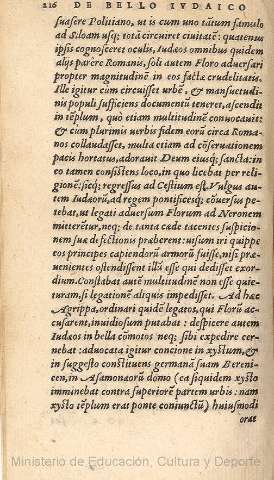 216 DE BELLO IVDAICO
suasere Politiano, ut is cum uno tãtum famulo
ad Siloam usq; totã circuiret ciuitatẽ: quatenus
ipsis cognosceret oculis, Iudæos omnibus quidem
alijs parẽre Romanis, soli autem Floro aduersari
propter magnitudinẽ in eos factæ crudelitatis.
Ille igitur cùm circuisset urbẽ, & mansuetudi-
nis populi sufficiens documẽtũ teneret, ascendit
in tẽplum, quò etiam multitudinẽ conuocauit:
& cùm plurimis uerbis fidem eorũ circa Roma-
nos collaudasset, multa etiam ad cõseruationem
pacis hortatus, adorauit Deum eiusq; sancta: in
eo tamen consistens loco, in quo licebat per reli-
gionẽ: sicq; regressus ad Cestium est. Vulgus au-
tem Iudæorũ, ad regem pontificesq; cõuersus pe-
tebat, ut legati aduersum Florum ad Neronem
mitterẽtur, neq; de tanta cæde tacentes suspicio-
nem suæ defectionis præberent: uisum iri quippe
eos principes capiendorũ armorũ fuisse, nisi præ-
uenientes ostendissent illũ esse qui dedisset exor-
dium. Constabat autẽ multitudinẽ non esse quie-
turam, si legationẽ aliquis impedisset. Ad hæc
Agrippa, ordinari quidẽ legatos, qui Florũ ac-
cusarent, inuidiosum putabat: despicere autem
Iudæos in bella cõmotos neq; sibi expedire cer-
nebat: aduocata igitur concione in xystum, &
in suggesto constituens germanã suam Bereni-
cen, in Asamonæorũ domo (ea siquidem xysto
imminebat contra superiorẽ partem urbis: nam
xysto tẽplum erat ponte coniunctũ) huiusmodi
orat
Ministerio de Educación, Cultura y Deporte